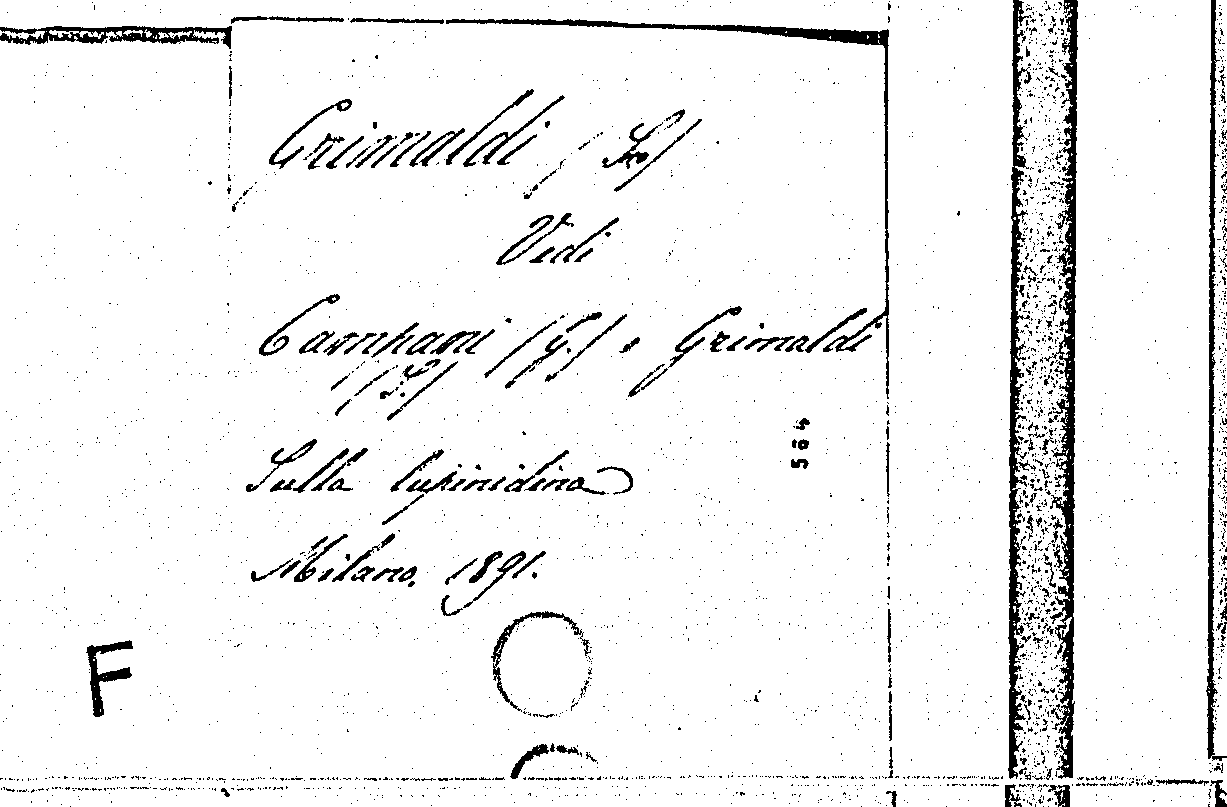 Grimaldi (Sro)
Vedi
Campani (G.) e Grimaldi
(S.)
Sulla lupinidina
Milano. 1891.
564
F